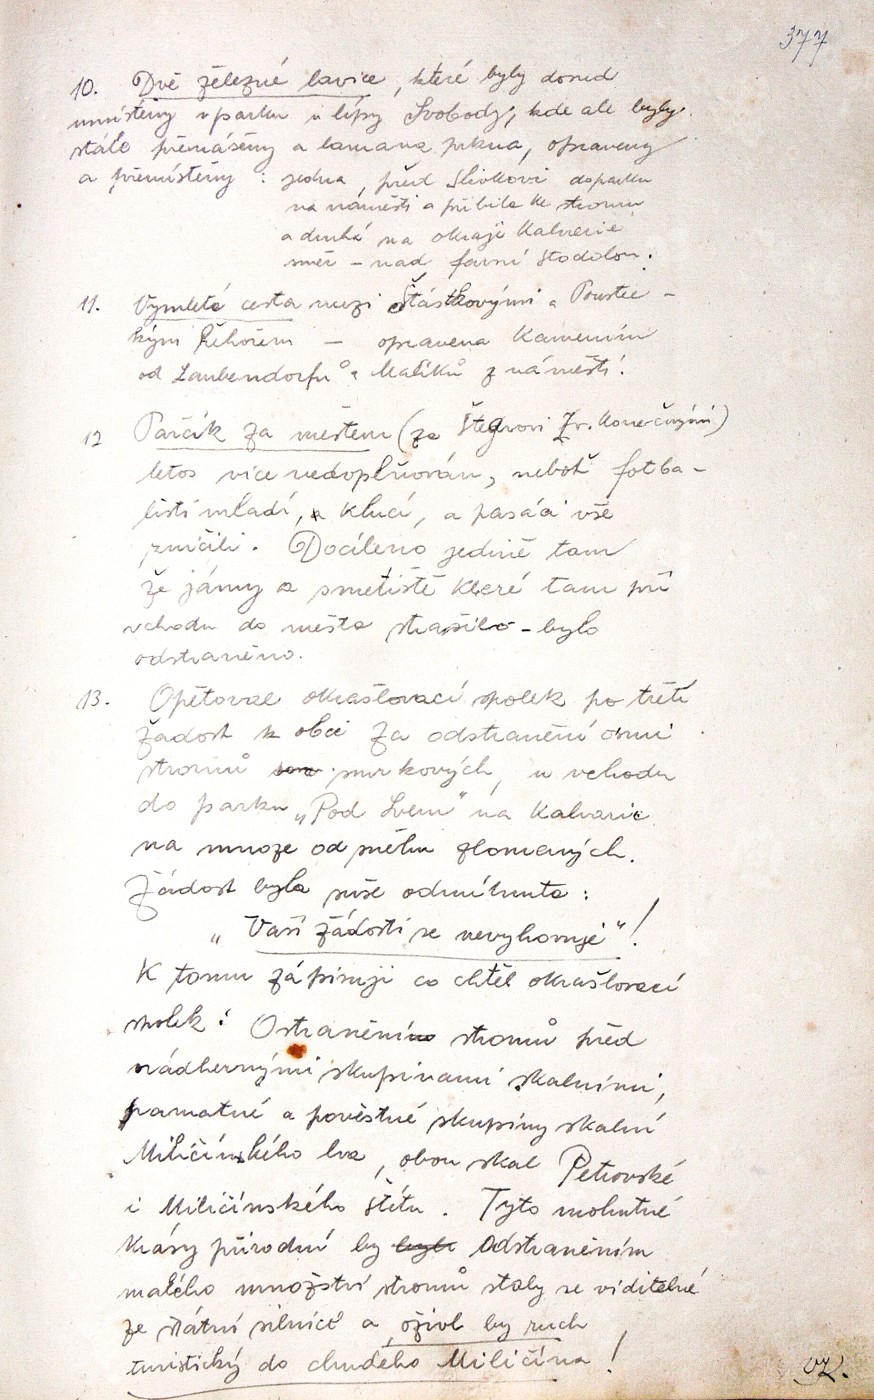 377
10. Dvě železné lavice, které byly dosud
umístěny v parku u lípy Svobody, kde ale byly
stále přenášeny a lámána prkna, opraveny
a přemístěny : jedna před Slívkovi do parku
na náměstí a přibita ke stromu
a druhá na okraji Kalvarie
směr - nad farní stodolou.
11. Vymletá cesta mezi Šťástkovými a Poustec-
kým Řehořem - opravena kamením
od Laubendorfů a Malíků z náměstí.
12 Parčík za městem (za Konečnými)
letos více nedoplňován, neboť fotba-
listi mladí, a kluci, a pasáci vše
zničili. Docíleno jedině tam
že jámy a smetiště které tam při
vchodu do města strašilo - bylo
odstraněno.
13. Opětoval okrašlovací spolek po třetí
žádost k obci za odstranění osmi
stromů smrkových, u vchodu
do parku „Pod Lvem" na Kalvarii
na mnoze od sněhu zlomaných.
Žádost byla suše odmítnuta :
„Vaší žádosti se nevyhovuje"!
K tomu zápisuji co chtěl okrašlovací
spolek : Ostranění stromů před
nádhernými skupinami skalními,
památné a pověstné skupiny skalní
Miličínského lva, obou skal Petrovské
i Miličínského štítu. Tyto mohutné
krásy přírodní by byli odstraněním
malého množství stromů staly se viditelné
ze státní silnice a oživl by ruch
turistický do chudého Miličína!